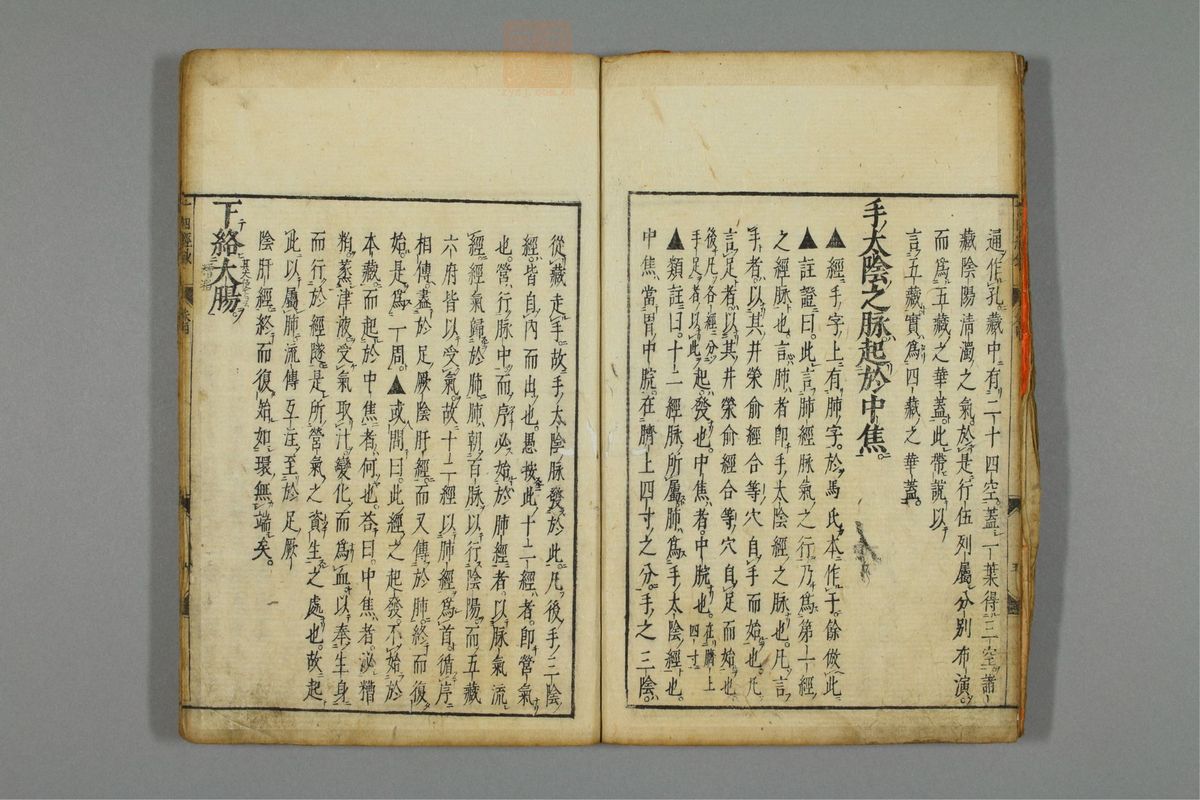 通作孔藏中有二十四空蓋一葉得三空諸
藏陰陽清濁之氣於是行伍列屬分別布演
而爲五藏之華蓋此帶說以
言五藏實爲四藏之華蓋
手太陰之脉起於中焦
▲經手字上有肺字於馬氏本作于餘倣此
▲註證曰此言肺經脉氣之行乃爲第一經
之經脉也言肺者即手太陰經之脉也凡言
手者以其井滎俞經合等穴自手而始也凡
言足者以其井滎俞經合等穴自足而始也
後凡各經分手足者以此起發也中焦者中脘也在臍上四寸
▲類註曰十二經脉所屬肺爲手太陰經也
中焦當胃中脘在臍上四寸之分手之三陰
從藏走手故手太陰脉發於此凡後手三陰
經皆自內而出也愚按此十二經者即營氣
也營行脉中而序必始於肺經者以脉氣流
經經氣歸於肺肺朝百脉以行陰陽而五藏
六府皆以受氣故十二經以肺經爲首循序
相傳盡於足厥陰肝經而又傳於肺終而復
始是爲一周▲或問曰此經之起發不始於
本藏而起於中焦者何也荅曰中焦者泌糟
粕蒸津液受氣取汁變化而爲血以奉生身
而行於經隧是所營氣之資生之處也故起
此以屬肺流傳互注至於足厥
陰肝經終而復始如環無端矣
下絡大腸